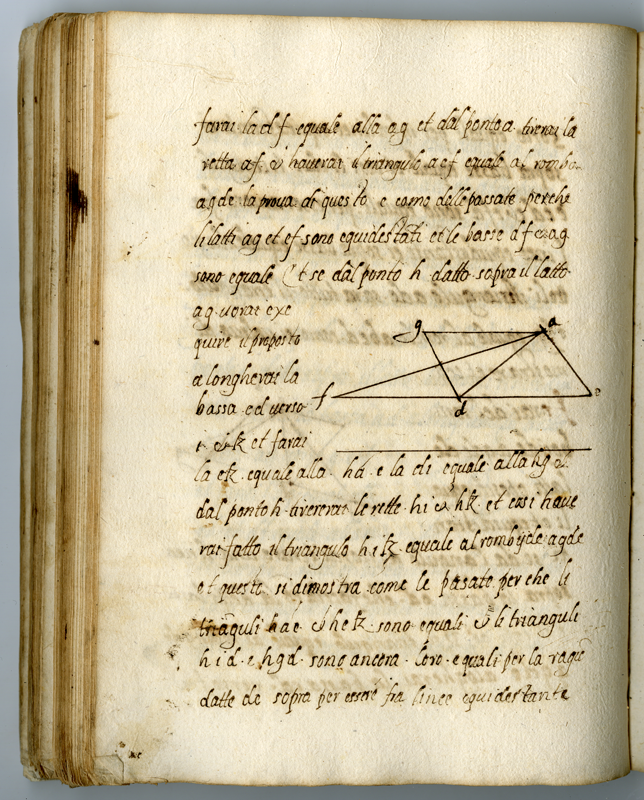 farai la d f equale alla a g et dal ponto a tirerai la
retta a f & haverai il triangulo a e f equale al rombo
a g d e la prova di questo e como delle passate perche
li latti a g et e f sono equidestāti et le basse d f & a g
sono equale Et se dal ponto h datto sopra il latto
a g vorai exe
quire il proposto
a longherai la
bassa e d verso
i & k et farai
la e k equale alla h a e la d i equale alla h g &
dal ponto h tirerai le rette h i & h k et cosi have
rai fatto il triangulo h i k equale al romboide a g d e
et questo si dimostra come le pasate perche li
triāguli h a e & h e k sono equali & li trianguli
h i d e h g d sono ancora loro equali per la ragiō
datte de sopra per essere fra linee equidestante
g a
f d e